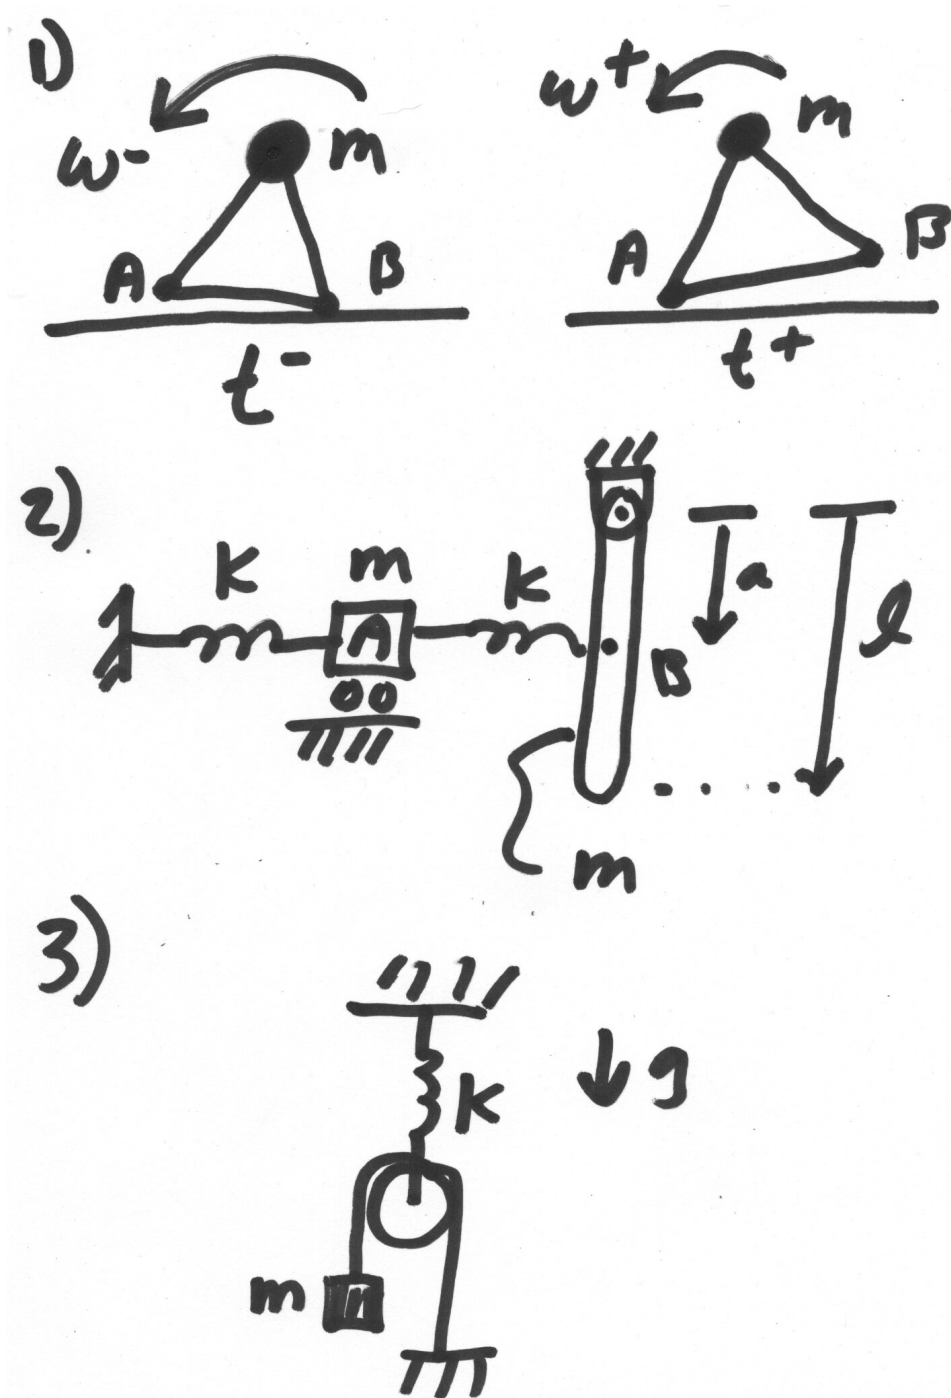 1)
ω⁻ m
A B
t⁻
ω⁺ m
A B
t⁺
2)
K m K
A
a l
B
m
3)
K ↓g
m